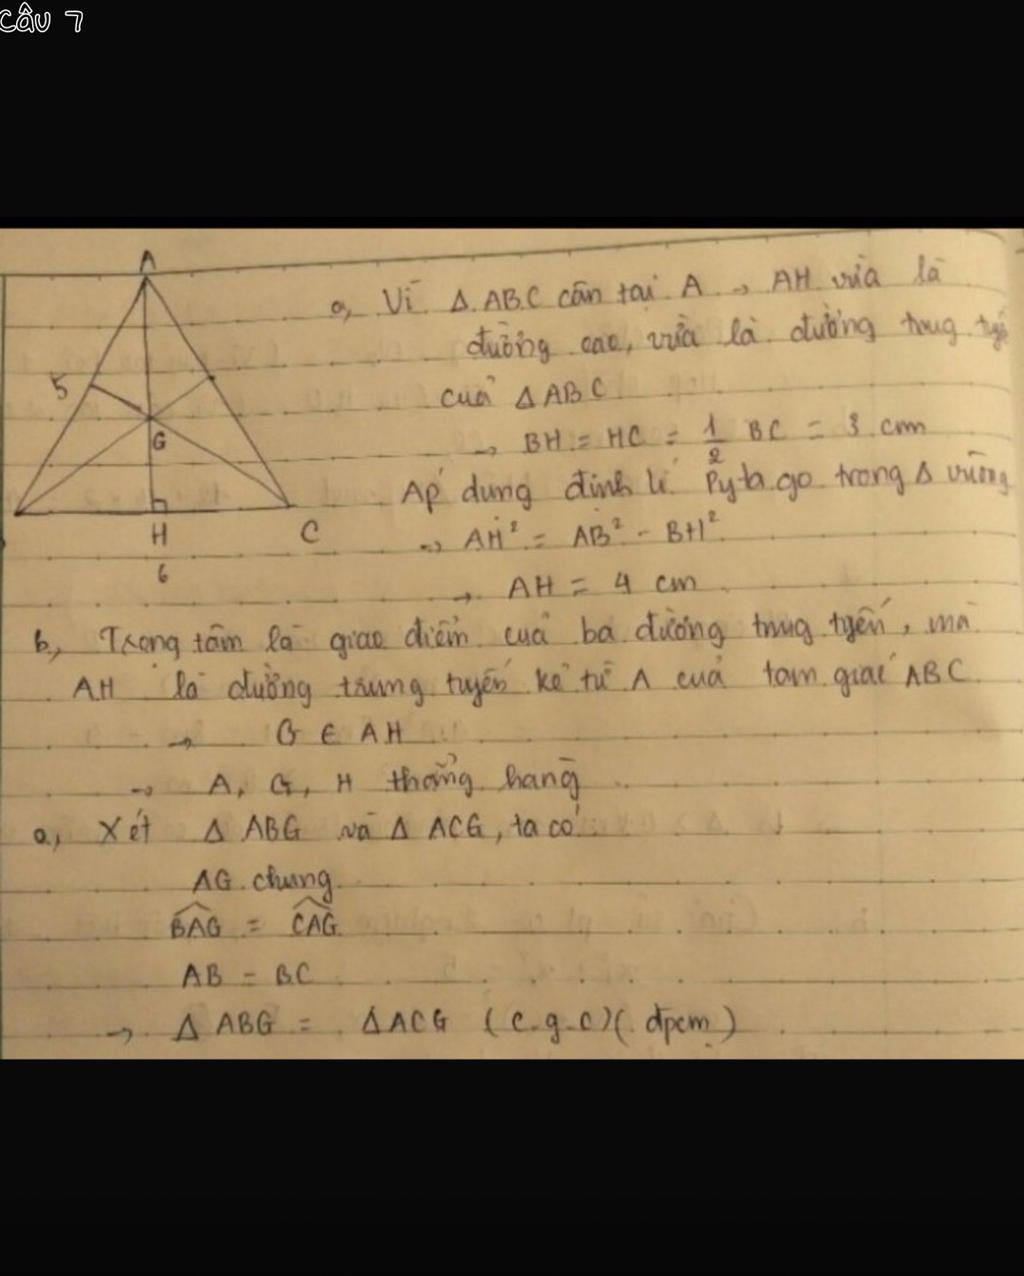 Câu 7
A
5
G
H
C
6
a, Vì Δ ABC cân tại A → AH vừa là
đường cao, vừa là đường trug tyế
cuả Δ ABC
→ BH = HC = 1/2 BC = 3 cm
Áp dung định lí Pytago trong Δ vuông
→ AH² = AB² - BH²
→ AH = 4 cm
b, Trọng tâm là giao điểm cuả ba đường trug tyến, mà
AH là đường trung tuyến kẻ từ A cuả tam giác ABC
→ G ∈ AH
→ A, G, H thẳng hàng
a, Xét Δ ABG và Δ ACG, ta có
AG chung
BAG^ = CAG^
AB = BC
→ Δ ABG = Δ ACG (c.g.c)(đpcm)